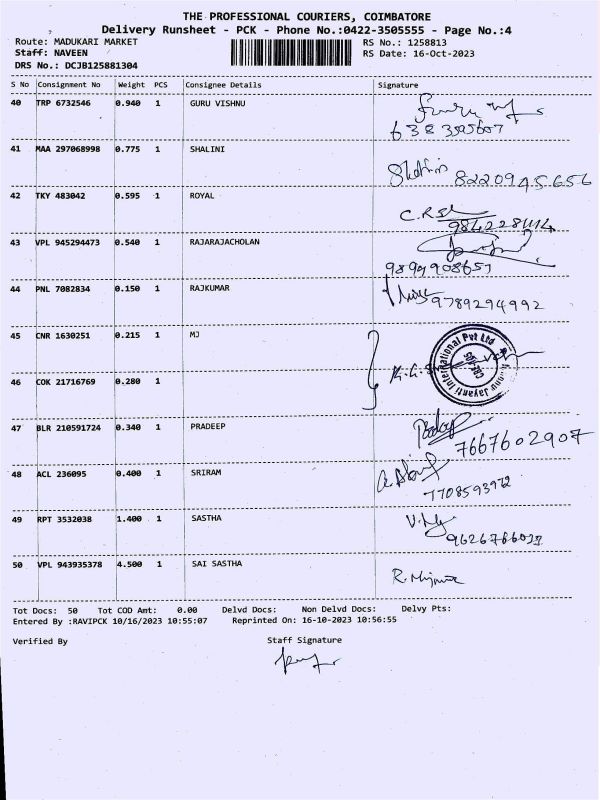 THE PROFESSIONAL COURIERS, COIMBATORE
Delivery Runsheet - PCK - Phone No.:0422-3505555 - Page No.:4
Route: MADUKARI MARKET RS No.: 1258813
Staff: NAVEEN RS Date: 16-Oct-2023
DRS No.: DCJB125881304
S No Consignment No Weight PCS Consignee Details Signature
40 TRP 6732546 0.940 1 GURU VISHNU
41 MAA 297068998 0.775 1 SHALINI
Shalini 8220945656
42 TKY 483042 0.595 1 ROYAL
43 VPL 945294473 0.540 1 RAJARAJACHOLAN
44 PNL 7082834 0.150 1 RAJKUMAR
9789294992
45 CNR 1630251 0.215 1 MJ
International Pvt Ltd
Jayanti
46 COK 21716769 0.280 1
47 BLR 210591724 0.340 1 PRADEEP
7667602907
48 ACL 236095 0.400 1 SRIRAM
7708593972
49 RPT 3532038 1.400 1 SASTHA
50 VPL 943935378 4.500 1 SAI SASTHA
Tot Docs: 50 Tot COD Amt: 0.00 Delvd Docs: Non Delvd Docs: Delvy Pts:
Entered By :RAVIPCK 10/16/2023 10:55:07 Reprinted On: 16-10-2023 10:56:55
Verified By Staff Signature